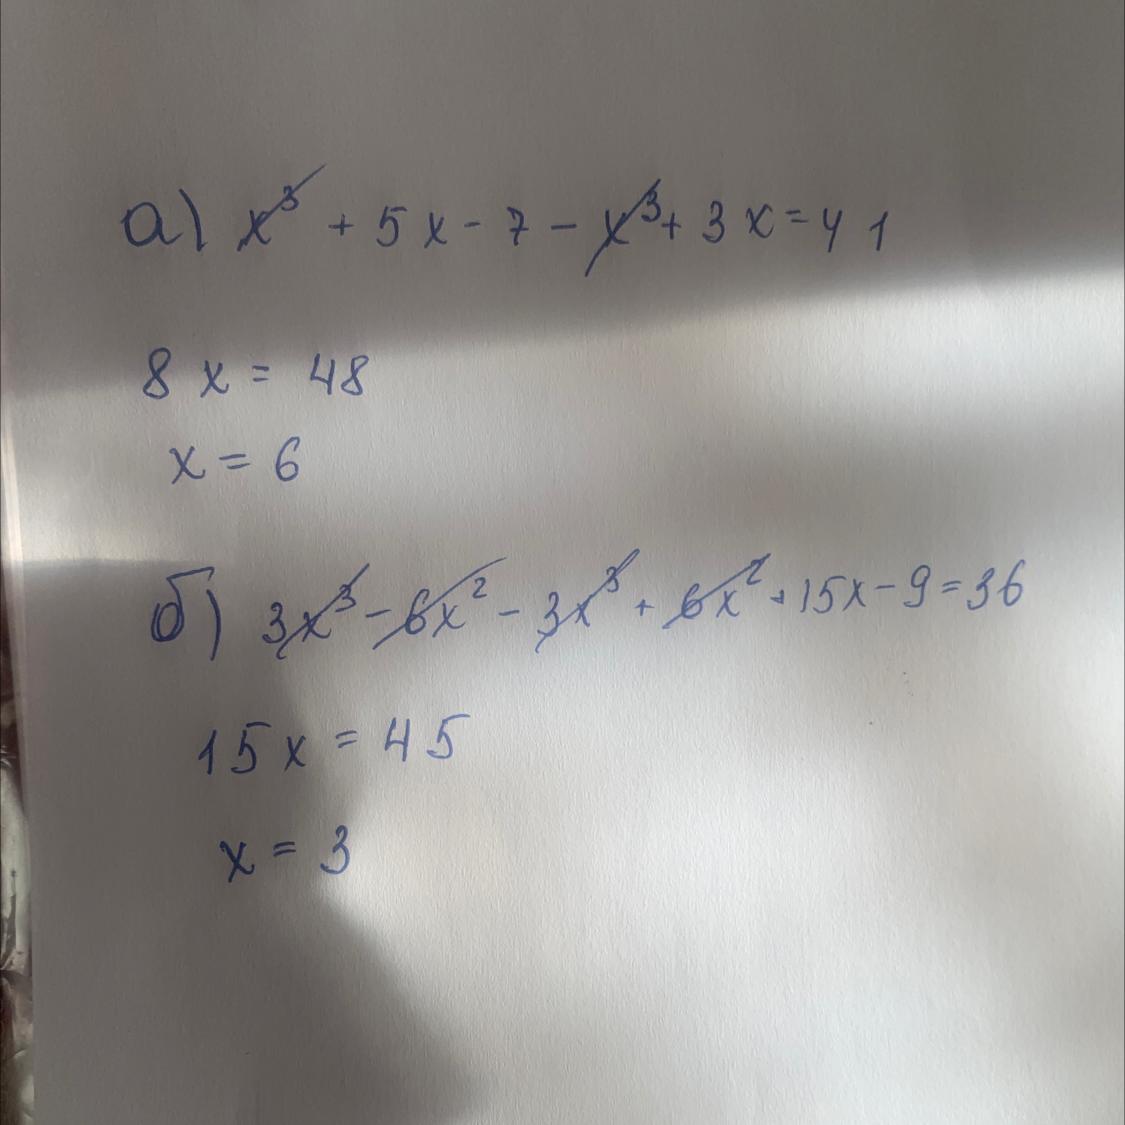 а) x³ + 5x - 7 - x³ + 3x = 41
8x = 48
x = 6
б) 3x³ - 6x² - 3x³ + 6x² + 15x - 9 = 36
15x = 45
x = 3